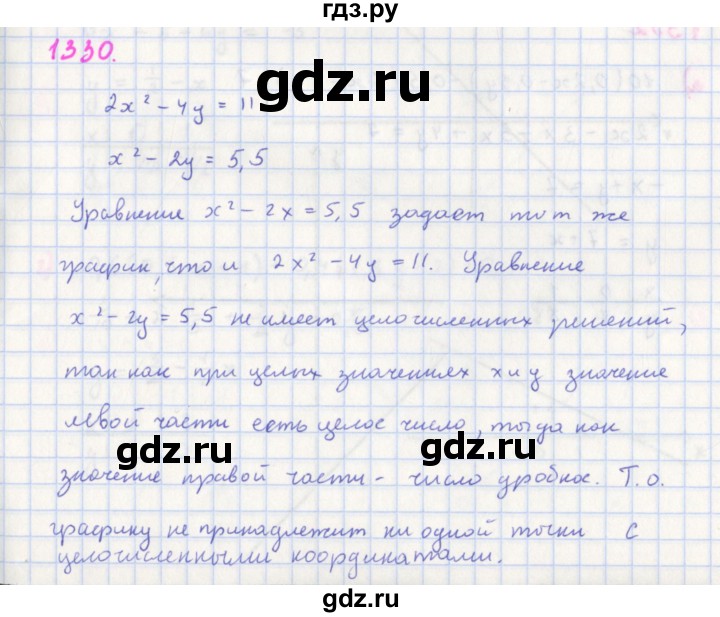 гдз.ру
1330.
2x² - 4y = 11
x² - 2y = 5,5
Уравнение x² - 2x = 5,5 задает тот же
график, что и 2x² - 4y = 11. Уравнение
x² - 2y = 5,5 не имеет целочисленных решений,
так как при целых значениях x и y значение
левой части есть целое число, тогда как
gdz.ru
gdz.ru
значение правой части - число дробное. Т.о.
графику не принадлежит ни одной точки с
целочисленными координатами.
gdz.ru